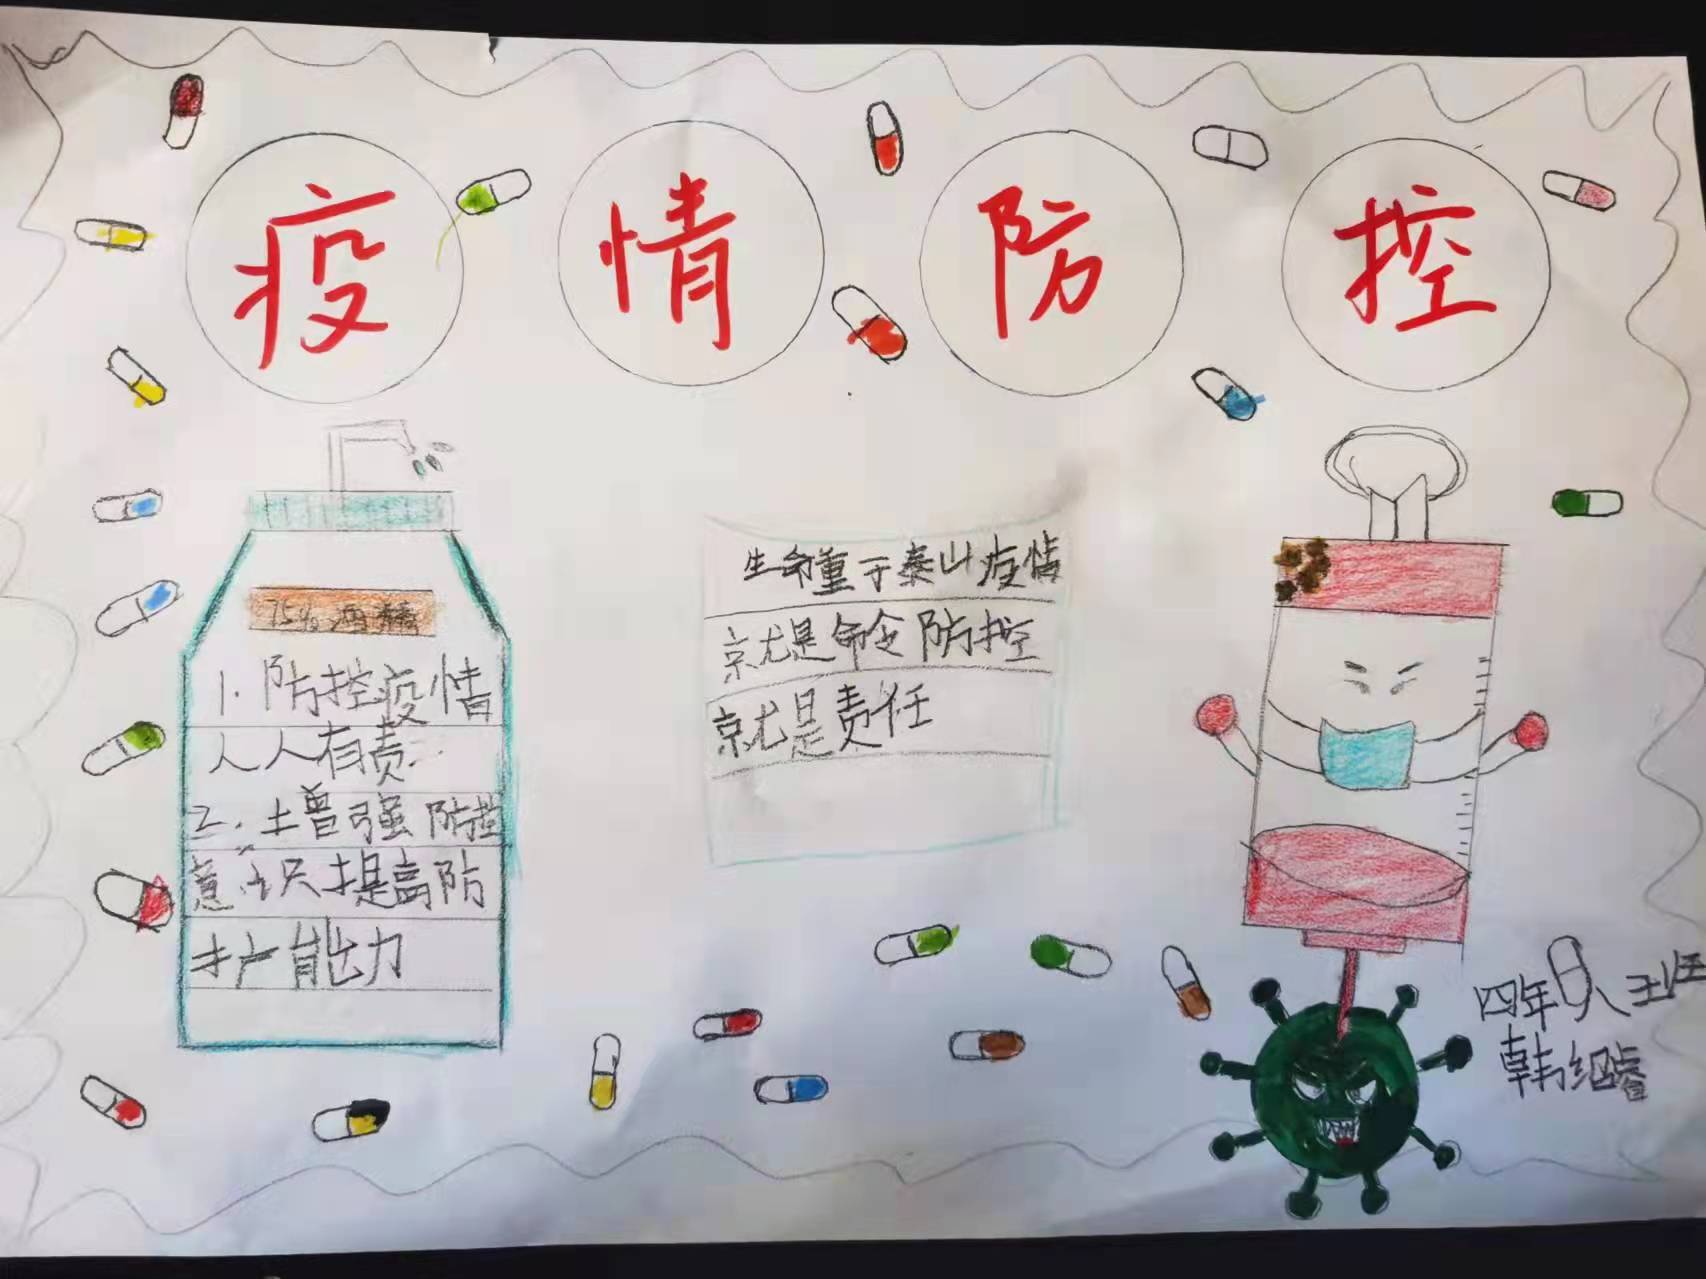 疫情防控
75%酒精
1.防控疫情
人人有责
2.增强防控
意识提高防
护能力
生命重于泰山疫情
就是命令防控
就是责任
四年八班